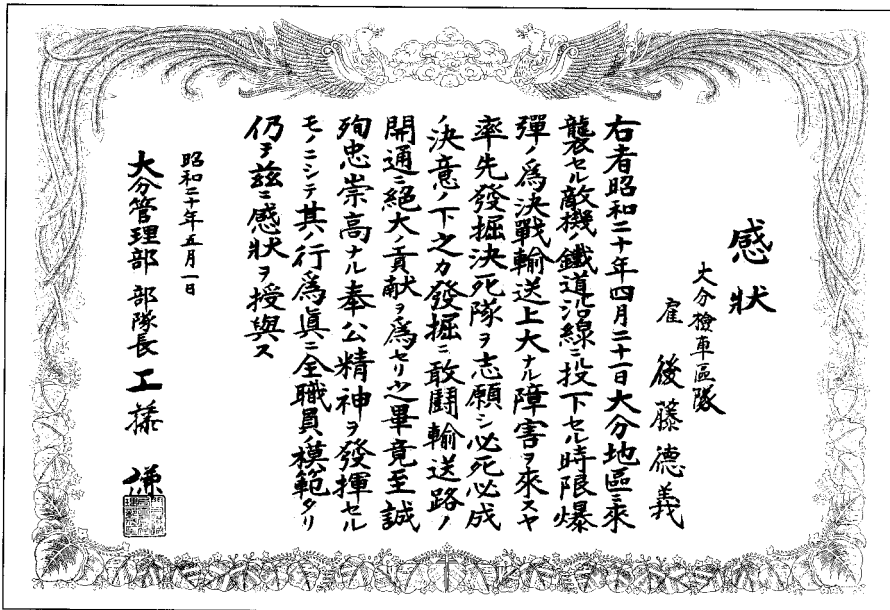 感狀
大分檢車區隊
雇 後藤德義
右者昭和二十年四月二十一日大分地區ニ來
襲セル敵機ノ鐵道沿線ニ投下セル時限爆
彈ノ爲決戰輸送上大ナル障害ヲ來スヤ
率先發掘決死隊ヲ志願シ必死必成
ノ決意ノ下之カ發掘ニ敢鬪輸送路ノ
開通ニ絕大ノ貢献ヲ爲セリ之畢竟至誠
殉忠崇高ナル奉公精神ヲ發揮セル
モノニシテ其ノ行爲眞ニ全職員ノ模範タリ
仍テ茲ニ感狀ヲ授與ス
昭和二十年五月一日
大分管理部 部隊長 工藤